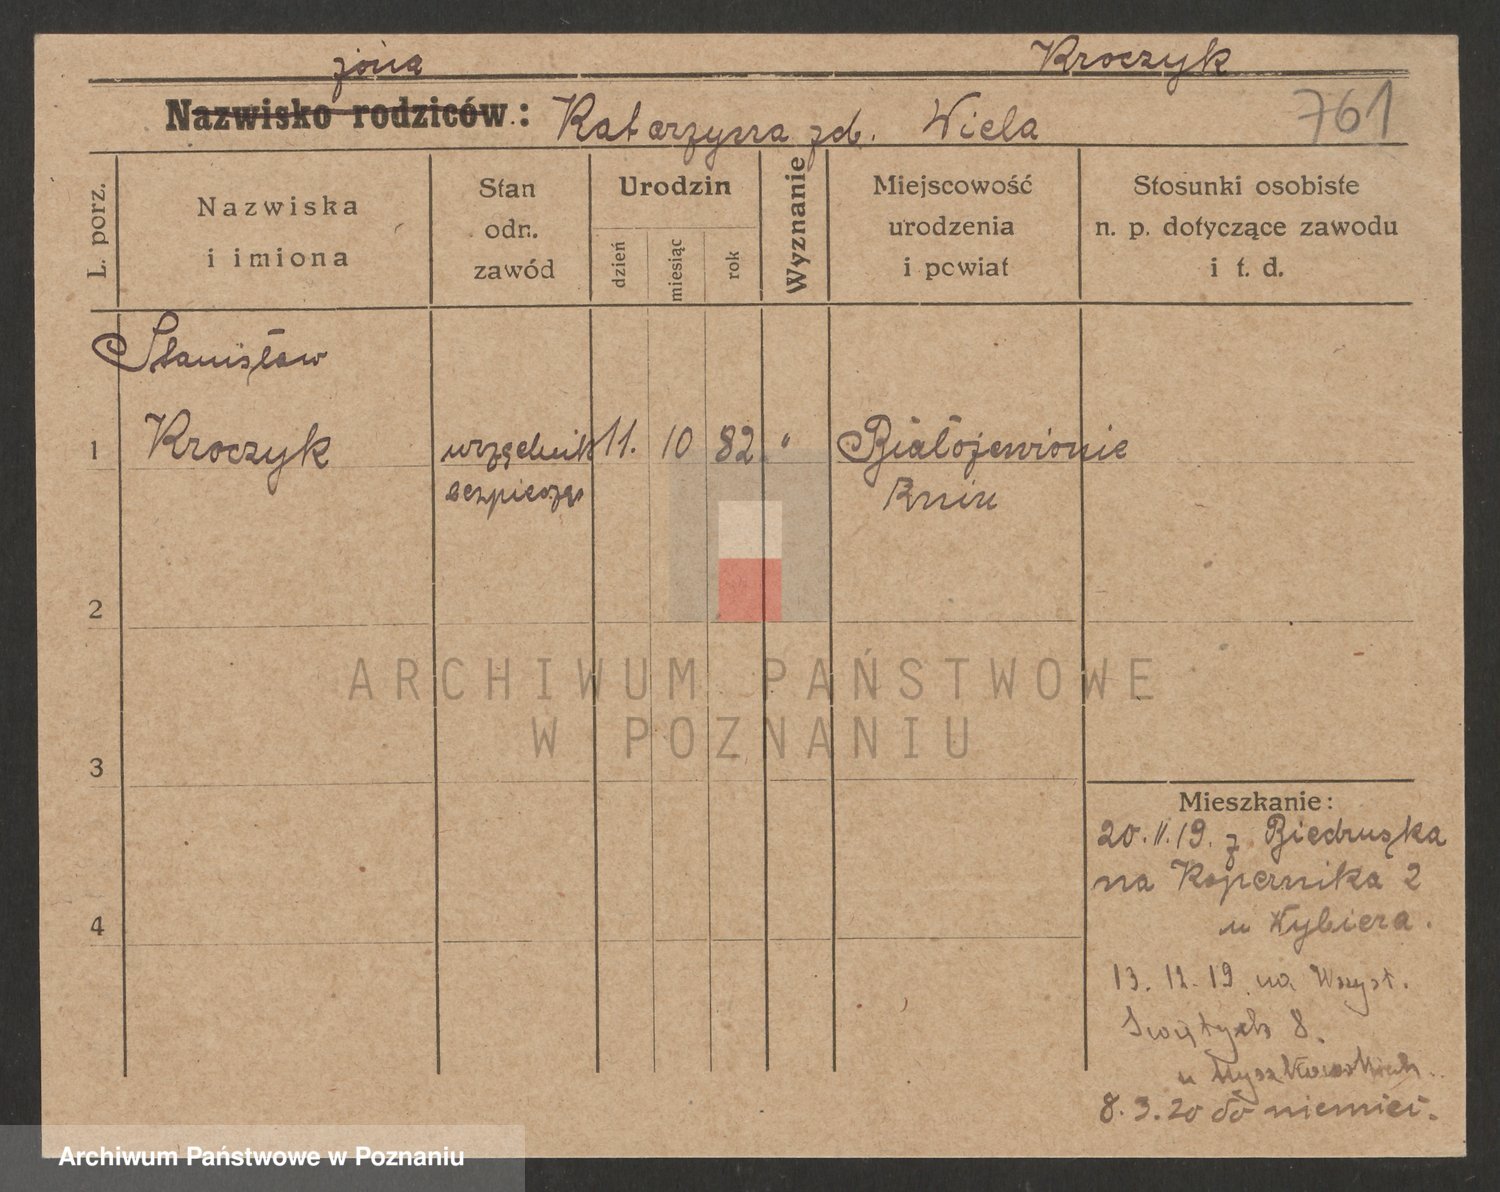 żona Kroczyk
Nazwisko rodziców: Katarzyna zdb. Wiela 761
L. porz.
Nazwiska
i imiona
Stan
odn.
zawód
Urodzin
dzień
miesiąc
rok
Wyznanie
Miejscowość
urodzenia
i powiat
Stosunki osobiste
n. p. dotyczące zawodu
i t. d.
Stanisław
1 Kroczyk urzędnik 11. 10 82. " Białojewionie
Żnin
2
3
4
Mieszkanie:
20.11.19. z Biedruska
na Kopernika 2
u Wybiera.
13. 12. 19 na Wszyst.
Świętych 8.
u
8. 3. 20 do niemiec.
ARCHIWUM PAŃSTWOWE
W POZNANIU
Archiwum Państwowe w Poznaniu